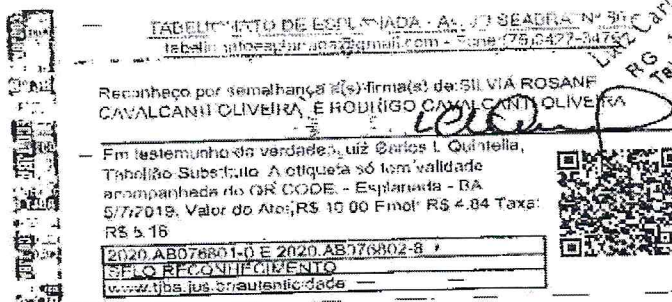 TABELIONATO DE ESPLANADA - AV. JJ SEABRA, Nº
@gmail.com - Fone: (75)3427-3479
Luiz Carl
RG
Reconheço por semelhança a(s) firma(s) de: SILVIA ROSANE
CAVALCANTI OLIVEIRA, E RODRIGO CAVALCANTI OLIVEIRA
Em testemunho da verdade. Luiz Carlos L. Quintella,
Tabelião Substituto. A etiqueta só tem validade
acompanhada do QR CODE. - Esplanada - BA
5/7/2019. Valor do Ato: R$ 10.00 Emol: R$ 4.84 Taxa:
R$ 5.16
2020.AB076801-0 E 2020.AB076802-8
SELO RECONHECIMENTO
www.tjba.jus.br/autenticidade